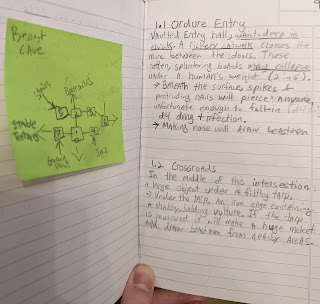 Beast
Cave
Barracks
Stable
Jail
1.1 Ordure Entry
Vaulted Entry hall, waist-deep in
muck. A rickety catwalk crosses the
mire between the doors. These
rotten, splintering boards may collapse
under a human's weight (2 in 6).
→ Beneath the surface, spikes &
protruding nails will pierce anyone
unfortunate enough to fall in
d4 dmg + infection.
→ Making noise will draw beastmen
1.2. Crossroads
In the middle of this intersection,
a large object under a filthy tarp.
→ Under the tarp, an iron cage containing
a shabby, balding vulture. If the tarp
is removed it will make a huge racket
and draw beastmen from nearby areas.